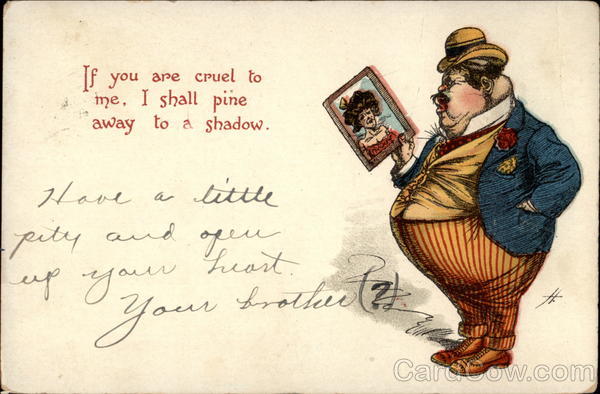 If you are cruel to
me, I shall pine
away to a shadow.
Have a little
pity and open
up your heart.
Your brother (?).
CardCow.com